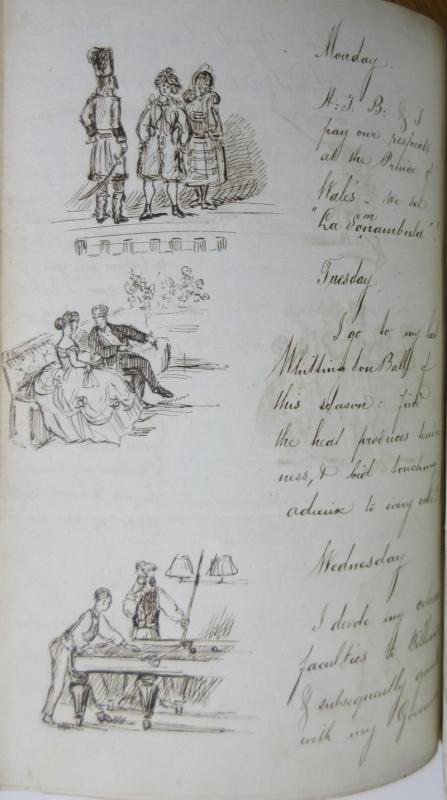 Monday.
H: J: B: & I
pay our respects
at the Prince of
Wales - we see
"La Somnambula"
Tuesday.
I go to my last
Whittington Ball of
this season: find
the heat produces tender
ness, & bid touching
adieux to every one
Wednesday
I devote my
faculties to Billiards
& subsequently
with my